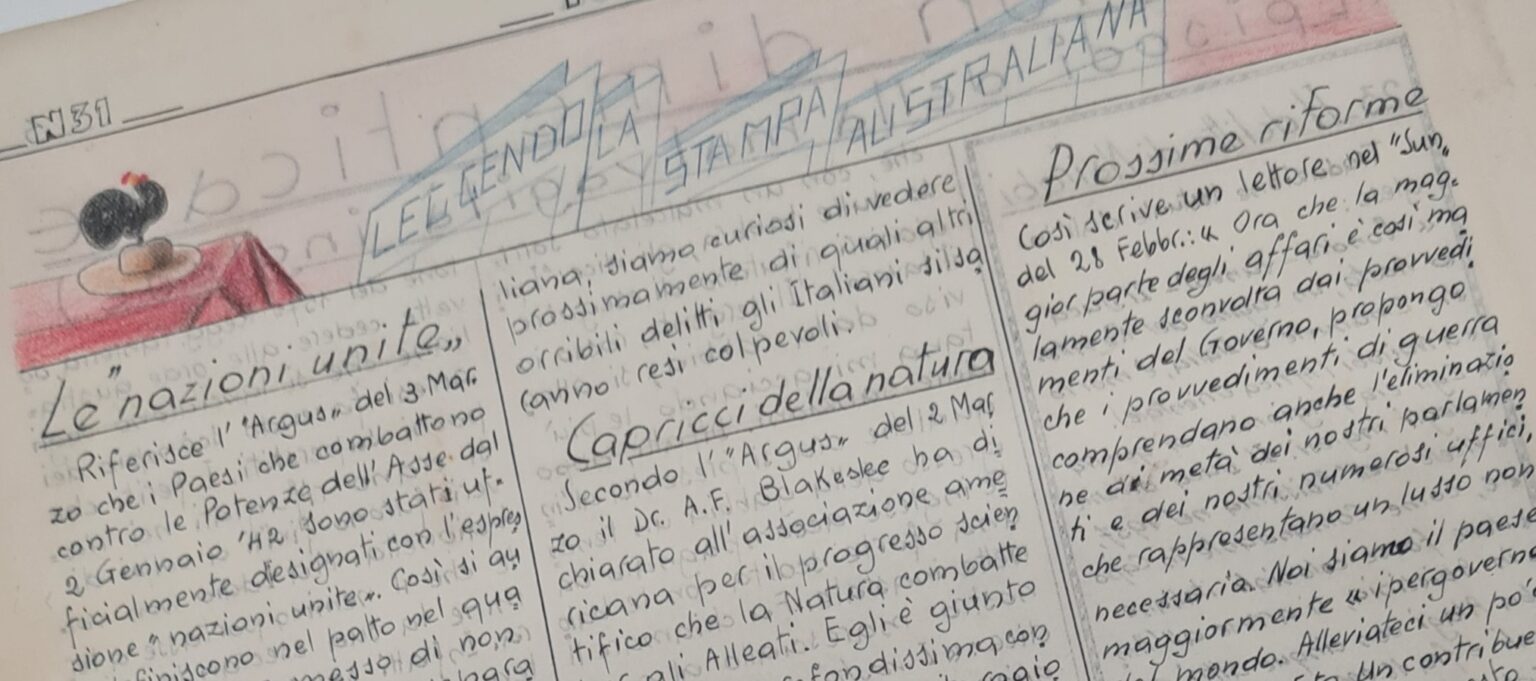 N31
LEGGENDO LA STAMPA AUSTRALIANA
Le "nazioni unite"
Riferisce l'"Argus" del 3 Mar
zo che i Paesi che combattono
contro le Potenze dell'Asse dal
2 Gennaio '42 sono stati uf-
ficialmente designati con l'espres
sione "nazioni unite". Così si au
finiscono nel patto nel qua
messo di non
liana, siamo curiosi di vedere
prossimamente di quali altri
orribili delitti gli Italiani si sa
ranno resi colpevoli.
Capricci della natura
Secondo l'"Argus" del 2 Mar
zo il Dr. A.F. Blakeslee ha di
chiarato all'associazione ame
ricana per il progresso scien
tifico che la Natura combatte
gli Alleati. Egli è giunto
fondissima con
Prossime riforme
Così scrive un lettore nel "Sun"
del 28 Febbr.: " Ora che la mag-
gior parte degli affari è così ma
lamente sconvolta dai provvedi
menti del Governo, propongo
che i provvedimenti di guerra
comprendano anche l'eliminazio
ne di metà dei nostri parlamen
ti e dei nostri numerosi uffici,
che rappresentano un lusso non
necessaria. Noi siamo il paese
maggiormente "ipergoverna
mondo. Alleviateci un po'
Un contribue